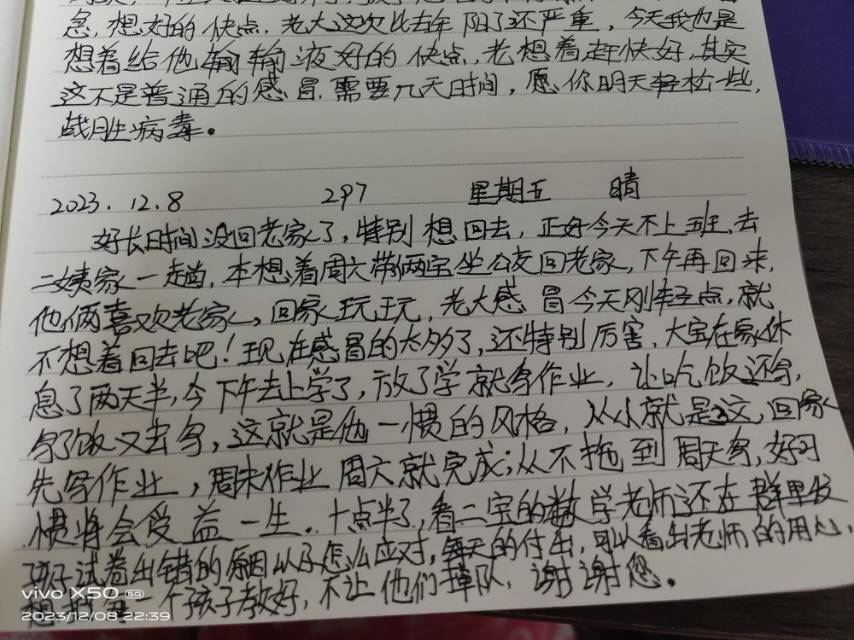 急,想好的快点,老大这次比去年阳了还严重,今天我也是
想着给他输输液好的快点,老想着赶快好,其实
这不是普通的感冒,需要几天时间,愿你明天轻松一些,
战胜病毒。
2023.12.8 297 星期五 晴
好长时间没回老家了,特别想回去,正好今天不上班,去
二姨家一趟,本想着周六带俩宝坐公交回老家,下午再回来,
他俩喜欢老家,回家玩玩,老大感冒今天刚轻点,就
不想着回去吧!现在感冒的太多了,还特别厉害,大宝在家休
息了两天半,今下午去上学了,放了学就写作业,让吃饭还写,
吃了饭又去写,这就是他一惯的风格,从小就是这,回家
先写作业,周末作业周六就完成;从不拖到周天写,好习
惯将会受益一生.十点半了,看二宝的数学老师还在群里发
孩子试卷出错的原因以及怎么应对,每天的付出,可以看出老师的用心,
想把 一个孩子教好,不让他们掉队,谢谢您。
vivo X50 5G
2023/12/08 22:39